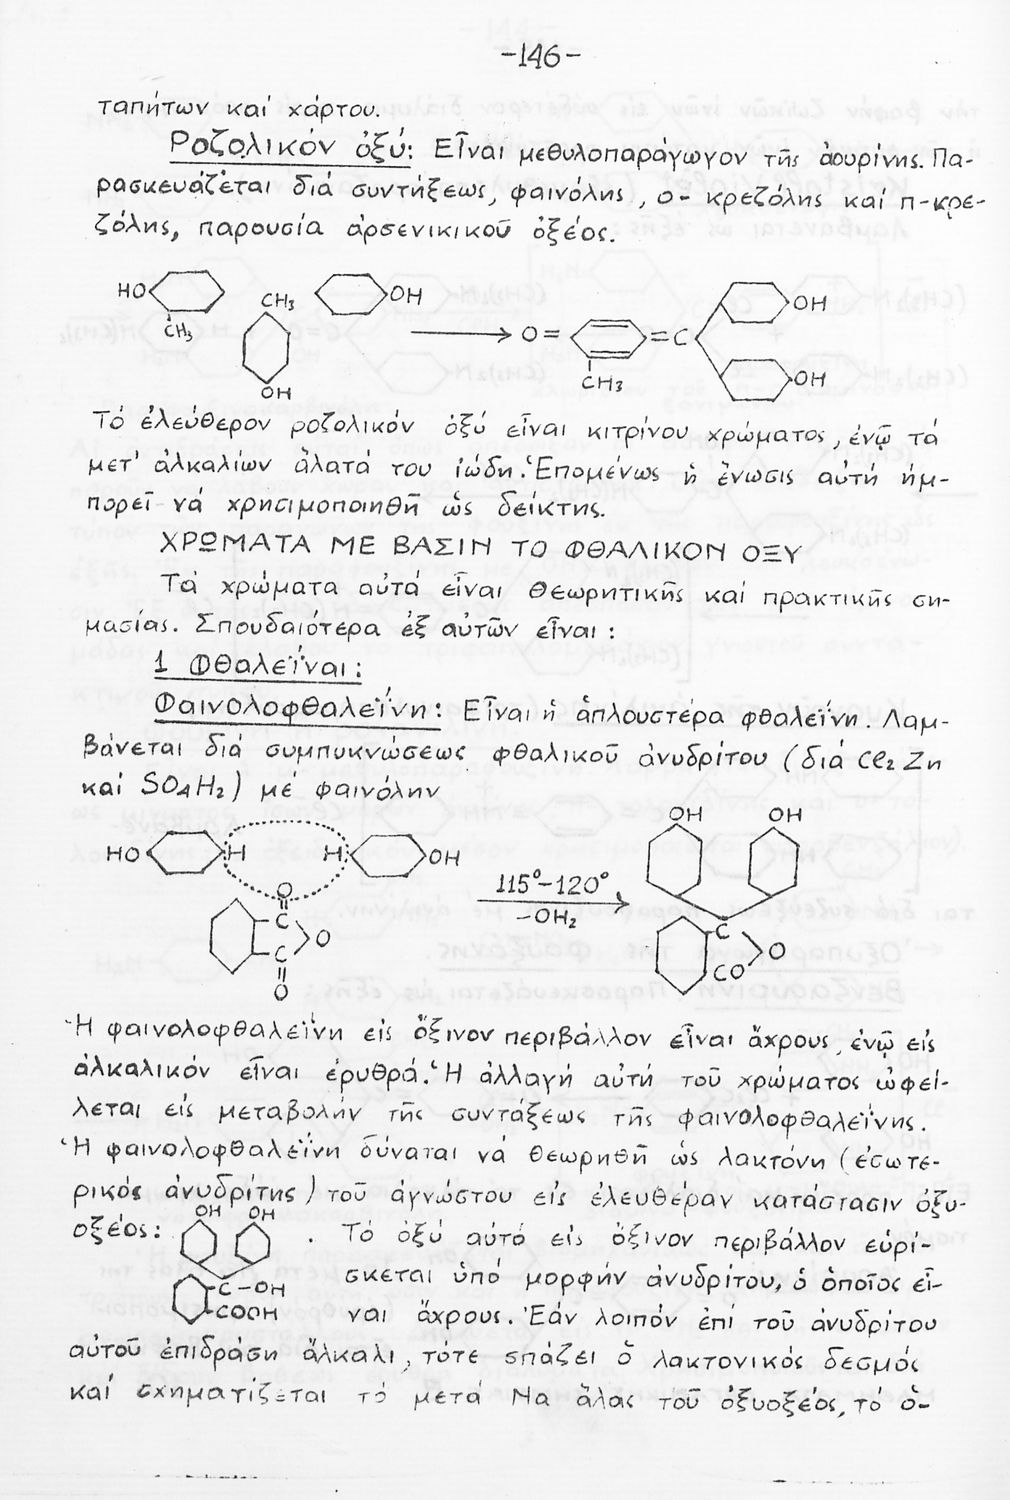 -146-
ταπήτων καί χάρτου.
Ροζολικόν ὀξύ: Εἶναι μεθυλοπαράγωγον τῆς ἀουρίνης. Πα-
ρασκευάζεται διά συντήξεως, φαινόλης, ο- κρεζόλης καί π-κρε-
ζόλης, παρουσία ἀρσενικικοῦ ὀξέος.
HO CH3 CH3 OH OH O= CH3 =C OH OH
Τό ἐλεύθερον ροζολικόν ὀξύ εἶναι κιτρίνου χρώματος, ἐνῷ τά
μετ' ἀλκαλίων ἅλατά του ἰώδη. Ἑπομένως ἡ ἕνωσις αὐτή ἠμ-
πορεῖ νά χρησιμοποιηθῆ ὡς δείκτης.
ΧΡΩΜΑΤΑ ΜΕ ΒΑΣΙΝ ΤΟ ΦΘΑΛΙΚΟΝ ΟΞΥ
Τά χρώματα αὐτά εἶναι θεωρητικῆς καί πρακτικῆς ση-
μασίας. Σπουδαιότερα ἐξ αὐτῶν εἶναι:
1 Φθαλεΐναι:
Φαινολοφθαλεΐνη: Εἶναι ἡ ἁπλουστέρα φθαλεΐνη. Λαμ-
βάνεται διά συμπυκνώσεως φθαλικοῦ ἀνυδρίτου (διά Cl2 Zn
καί SO4H2) μέ φαινόλην
HO H H OH O C O C O
115°-120°
-OH2
OH OH C O CO
Ἡ φαινολοφθαλεΐνη εἰς ὄξινον περιβάλλον εἶναι ἄχρους, ἐνῷ εἰς
ἀλκαλικόν εἶναι ἐρυθρά. Ἡ ἀλλαγή αὐτή τοῦ χρώματος ὠφεί-
λεται εἰς μεταβολήν τῆς συντάξεως τῆς φαινολοφθαλεΐνης.
Ἡ φαινολοφθαλεΐνη δύναται νά θεωρηθῆ ὡς λακτόνη (ἐσωτε-
ρικός ἀνυδρίτης) τοῦ ἀγνώστου εἰς ἐλευθέραν κατάστασιν ὀξυ-
οξέος: OH OH C-OH COOH . Τό ὀξύ αὐτό εἰς ὄξινον περιβάλλον εὑρί-
σκεται ὑπό μορφήν ἀνυδρίτου, ὁ ὁποῖος εἶ-
ναι ἄχρους. Ἐάν λοιπόν ἐπί τοῦ ἀνυδρίτου
αὐτοῦ ἐπιδράση ἄλκαλι, τότε σπάζει ὁ λακτονικός δεσμός
καί σχηματίζεται τό μετά Na ἅλας τοῦ ὀξυοξέος, τό ὁ-